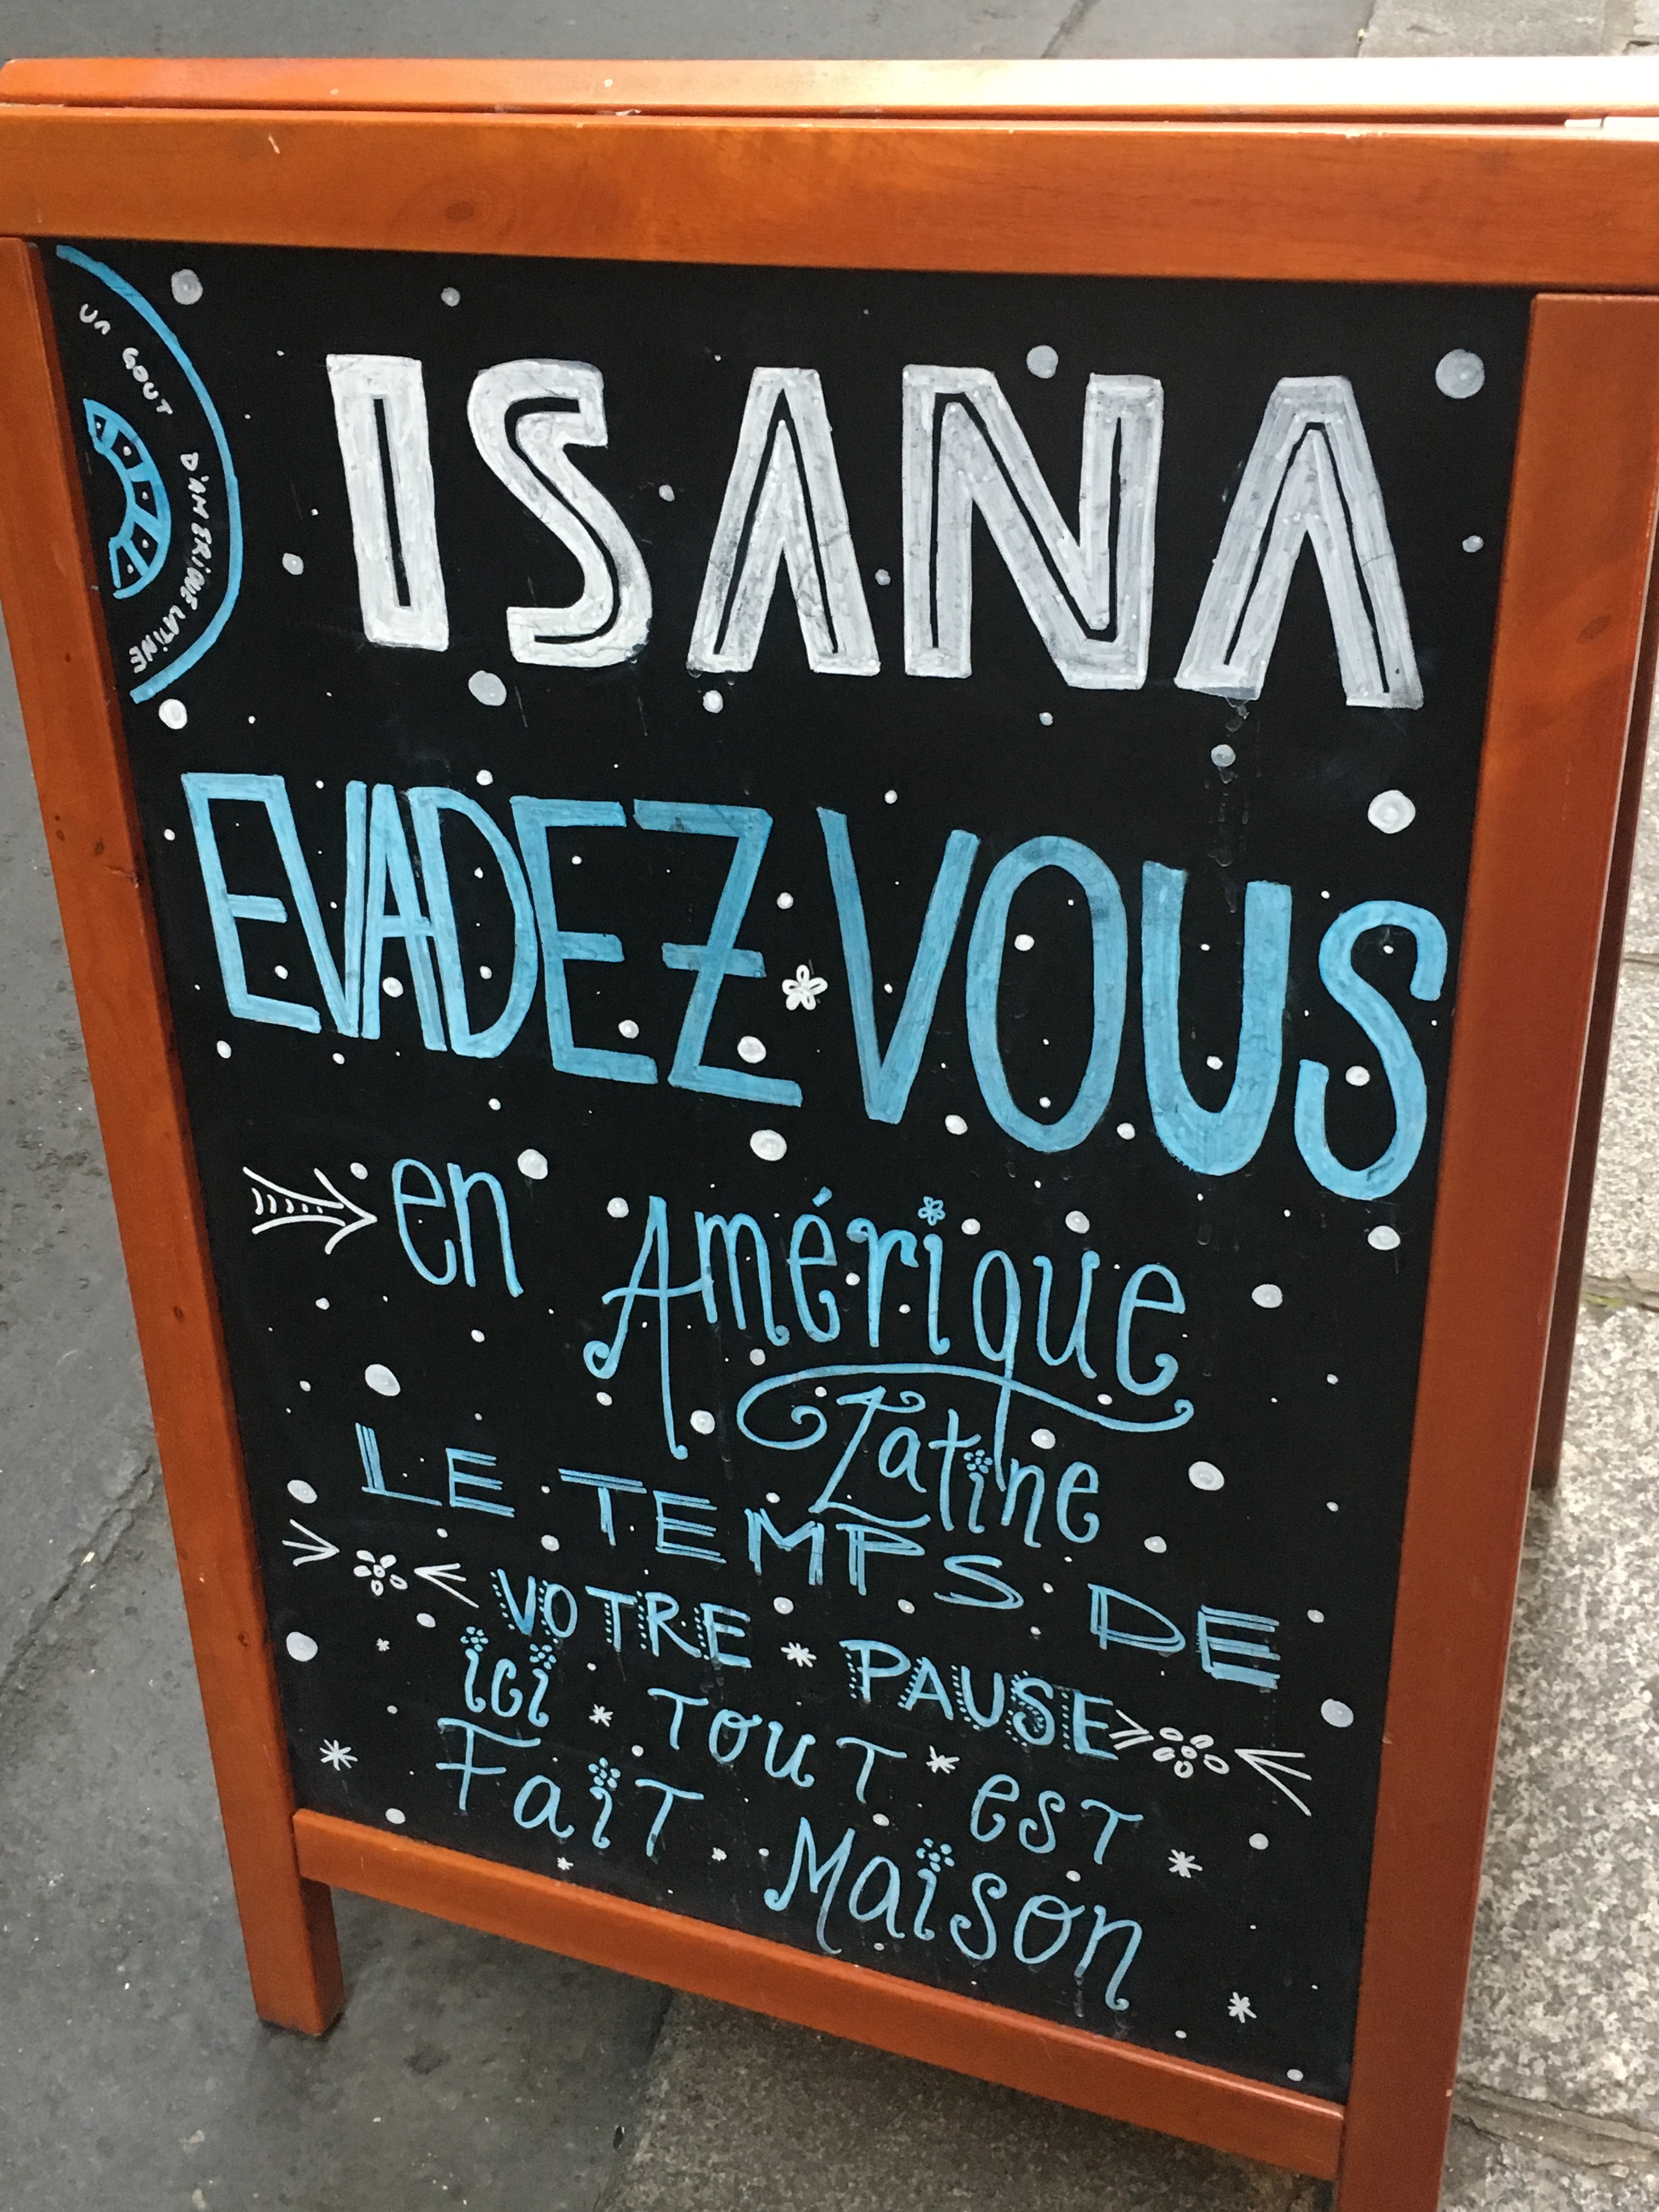 UN GOUT D'AMERIQUE LATINE
ISANA
EVADEZ VOUS
en Amérique
Latine
LE TEMPS DE
VOTRE PAUSE
ici TOUT EST
FaiT MaisoN